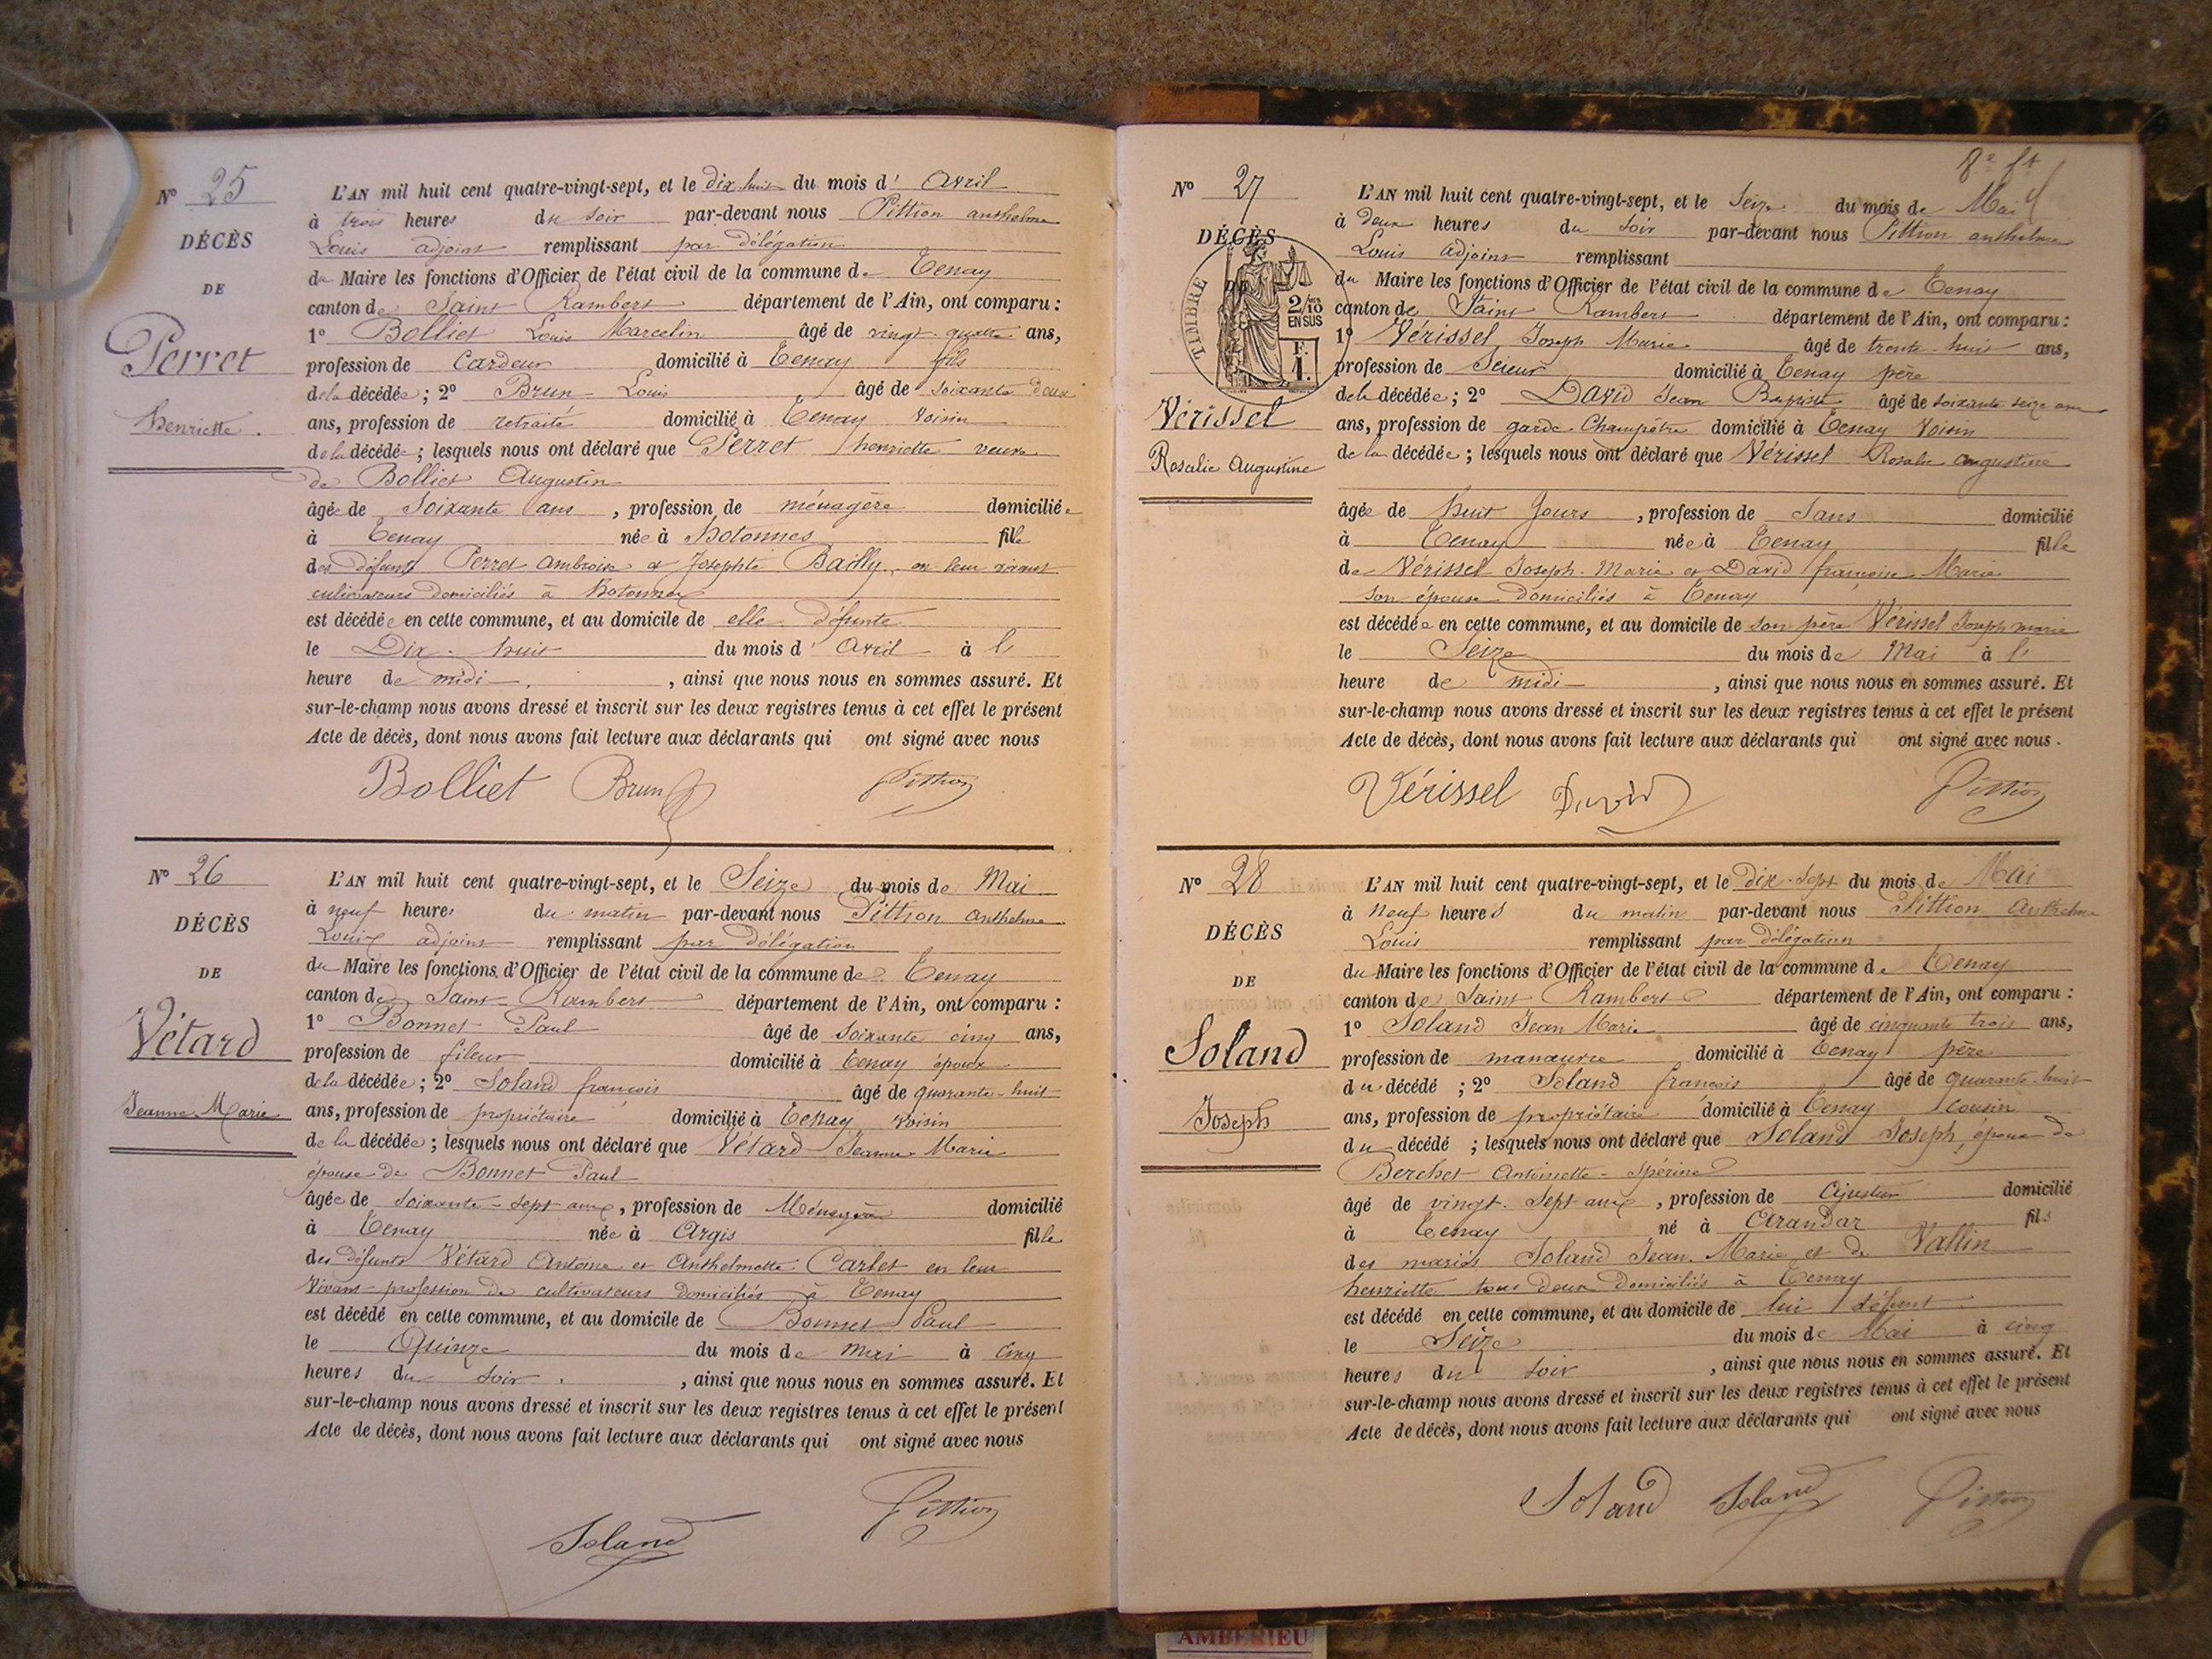 N° 25
DÉCÈS
DE
Perret
henriette.
L'AN mil huit cent quatre-vingt-sept, et le dix huit du mois d' Avril
à trois heures du soir par-devant nous Pittion anthelme
Louis adjoint remplissant par délégation
du Maire les fonctions d'Officier de l'état civil de la commune de Tenay
canton de Saint Rambert département de l'Ain, ont comparu :
1° Bolliet Louis Marcelin âgé de vingt-quatre ans,
profession de Cardeur domicilié à Tenay fils
de la décédée ; 2° Brun Louis âgé de soixante deux
ans, profession de retraité domicilié à Tenay voisin
de la décédée ; lesquels nous ont déclaré que Perret henriette veuve
de Bolliet Augustin
âgée de Soixante ans , profession de ménagère domiciliée
à Tenay née à hotonnes fille
des défunts Perret Ambroise et Josephte Bailly, en leur vivant
cultivateurs domiciliés à hotonnes
est décédée en cette commune, et au domicile de elle défunte
le Dix-huit du mois d' Avril à l'
heure de midi , ainsi que nous nous en sommes assuré. Et
sur-le-champ nous avons dressé et inscrit sur les deux registres tenus à cet effet le présent
Acte de décès, dont nous avons fait lecture aux déclarants qui ont signé avec nous
Bolliet Brun Pittion
N° 26
DÉCÈS
DE
Vétard
Jeanne-Marie
L'AN mil huit cent quatre-vingt-sept, et le Seize du mois de Mai
à neuf heures du matin par-devant nous Pittion Anthelme
Louis adjoint remplissant par délégation
du Maire les fonctions d'Officier de l'état civil de la commune de Tenay
canton de Saint-Rambert département de l'Ain, ont comparu :
1° Bonnet Paul âgé de soixante cinq ans,
profession de fileur domicilié à Tenay époux
de la décédée ; 2° Soland françois âgé de quarante-huit
ans, profession de propriétaire domicilié à Tenay voisin
de la décédée ; lesquels nous ont déclaré que Vétard Jeanne-Marie
épouse de Bonnet Paul
âgée de soixante-sept ans, profession de Ménagère domicilié
à Tenay née à Argis fille
des défunts Vétard Antoine et Anthelmette Carlet en leur
vivant profession de cultivateurs domiciliés à Tenay
est décédé en cette commune, et au domicile de Bonnet Paul
le Quinze du mois de mai à cinq
heures du soir , ainsi que nous nous en sommes assuré. Et
sur-le-champ nous avons dressé et inscrit sur les deux registres tenus à cet effet le présent
Acte de décès, dont nous avons fait lecture aux déclarants qui ont signé avec nous
Soland Pittion
8e ft
N° 27
DÉCÈS
DE
TIMBRE
2/10
EN SUS
F.
1.
Vérissel
Rosalie Augustine
L'AN mil huit cent quatre-vingt-sept, et le Seize du mois de Mai
à deux heures du soir par-devant nous Pittion anthelme
Louis adjoint remplissant
du Maire les fonctions d'Officier de l'état civil de la commune de Tenay
canton de Saint Rambert département de l'Ain, ont comparu :
1° Vérissel Joseph Marie âgé de trente-huit ans,
profession de Scieur domicilié à Tenay père
de la décédée ; 2° David Jean Baptiste âgé de soixante seize ans
ans, profession de garde-Champêtre domicilié à Tenay voisin
de la décédée ; lesquels nous ont déclaré que Vérissel Rosalie augustine
âgée de huit Jours , profession de Sans domicilié
à Tenay née à Tenay fille
de Vérissel Joseph-Marie et David françoise Marie
son épouse domiciliés à Tenay
est décédée en cette commune, et au domicile de son père Vérissel Joseph marie
le Seize du mois de Mai à l'
heure de midi , ainsi que nous nous en sommes assuré. Et
sur-le-champ nous avons dressé et inscrit sur les deux registres tenus à cet effet le présent
Acte de décès, dont nous avons fait lecture aux déclarants qui ont signé avec nous.
Vérissel David Pittion
N° 28
DÉCÈS
DE
Soland
Joseph
L'AN mil huit cent quatre-vingt-sept, et le dix-sept du mois de Mai
à Neuf heures du matin par-devant nous Pittion Anthelme
Louis remplissant par délégation
du Maire les fonctions d'Officier de l'état civil de la commune de Tenay
canton de Saint Rambert département de l'Ain, ont comparu :
1° Soland Jean Marie âgé de cinquante trois ans,
profession de manœuvre domicilié à Tenay père
du décédé ; 2° Soland françois âgé de quarante-huit
ans, profession de propriétaire domicilié à Tenay cousin
du décédé ; lesquels nous ont déclaré que Soland Joseph, époux de
Berchet Antoinette-Spérine
âgé de vingt-sept ans , profession de Ajusteur domicilié
à Tenay né à Arandas fils
des mariés Soland Jean-Marie et de Vallin
henriette tous deux domiciliés à Tenay
est décédé en cette commune, et au domicile de lui défunt
le Seize du mois de Mai à cinq
heures du soir , ainsi que nous nous en sommes assuré. Et
sur-le-champ nous avons dressé et inscrit sur les deux registres tenus à cet effet le présent
Acte de décès, dont nous avons fait lecture aux déclarants qui ont signé avec nous
Soland Soland Pittion
AMBERIEU